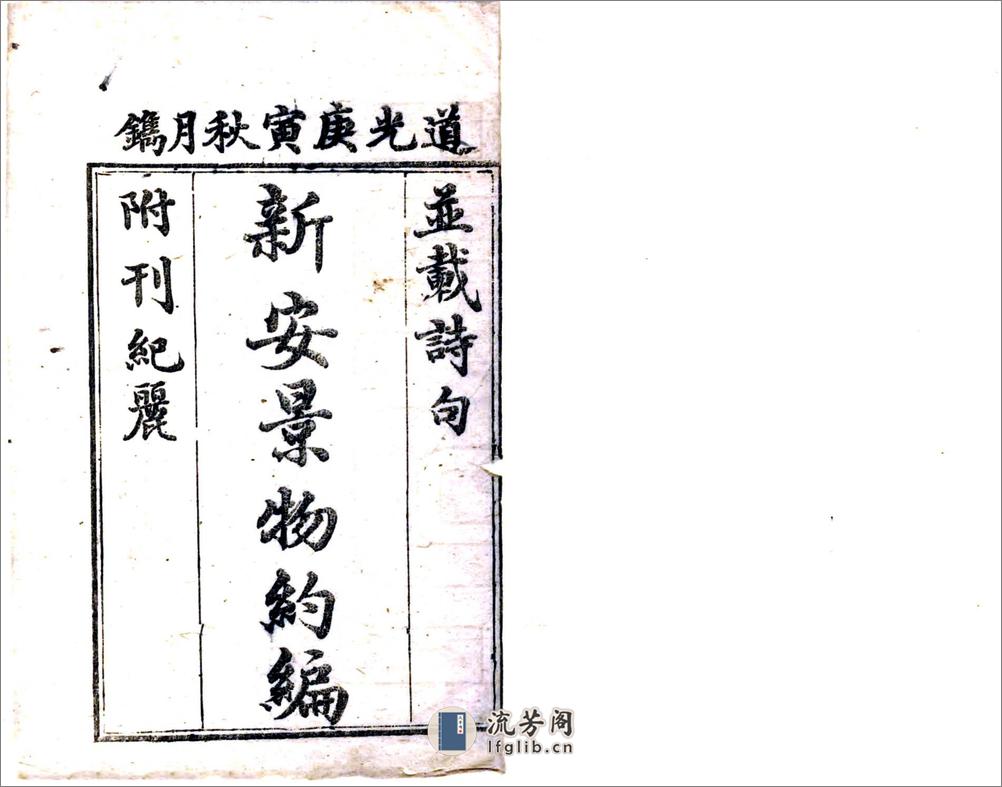 道光庚寅秋月鐫
並載詩句
新安景物約編
附刊紀麗
流芳阁
lfglib.cn